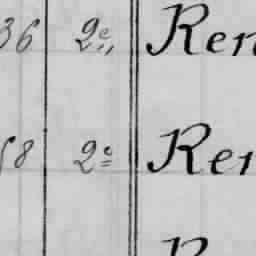 36 2e Ren
58 2e Ren